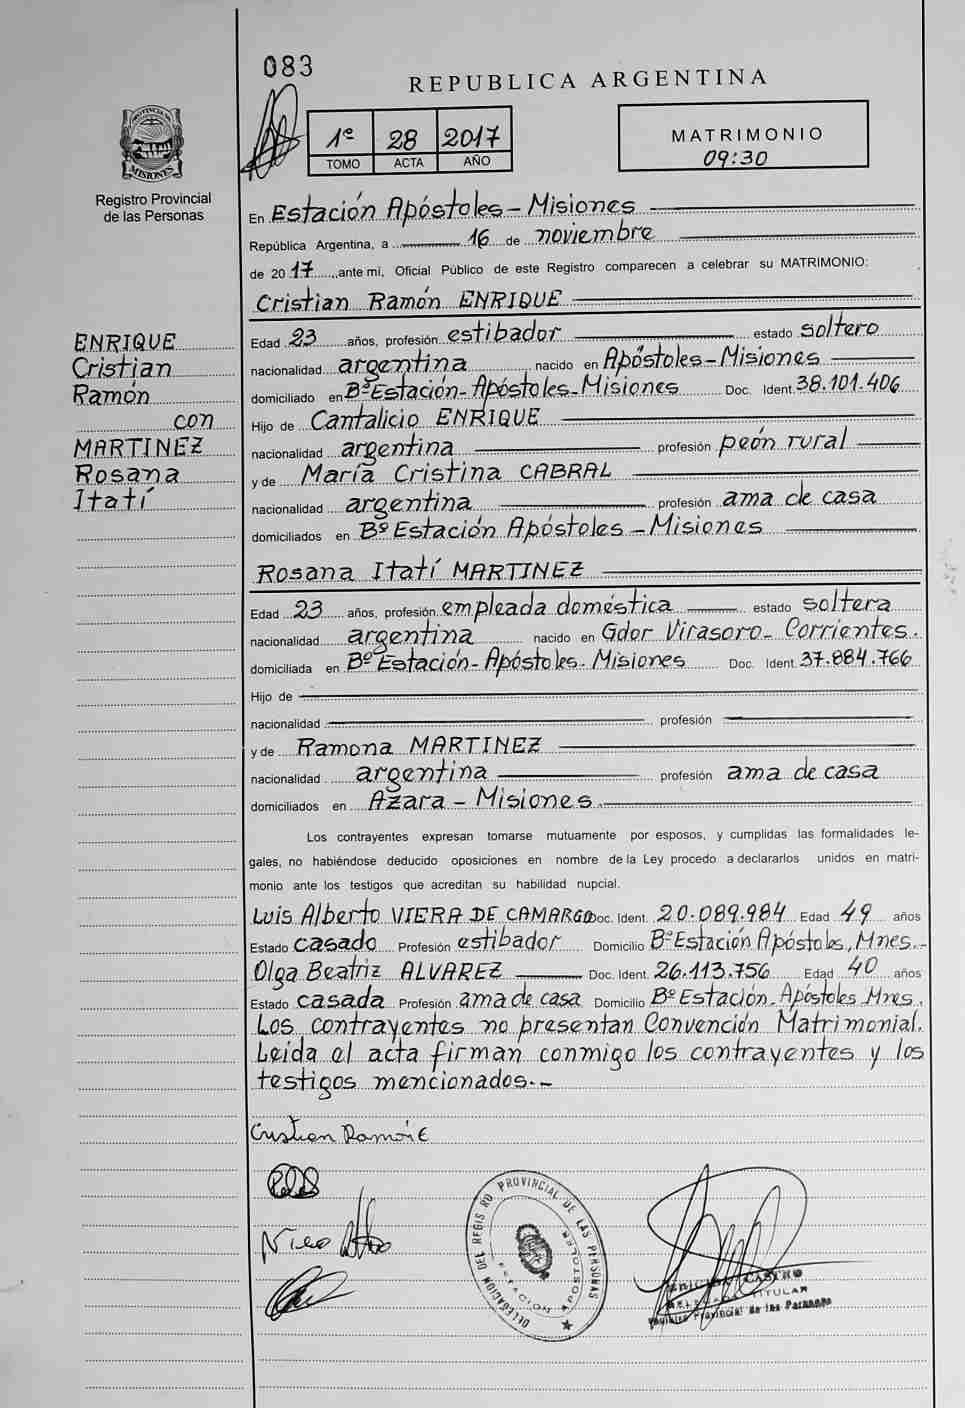 083
REPUBLICA ARGENTINA
PROVINCIA DE MISIONES
Registro Provincial
de las Personas
1º 28 2017
TOMO ACTA AÑO
MATRIMONIO
09:30
En Estación Apóstoles - Misiones
República Argentina, a 16 de noviembre
de 2017, ante mi, Oficial Público de este Registro comparecen a celebrar su MATRIMONIO:
Cristian Ramón ENRIQUE
ENRIQUE
Cristian
Ramón
con
MARTINEZ
Rosana
Itatí
Edad 23 años, profesión estibador estado soltero
nacionalidad argentina nacido en Apóstoles - Misiones
domiciliado en Bº Estación - Apóstoles - Misiones Doc. Ident. 38.101.406
Hijo de Cantalicio ENRIQUE
nacionalidad argentina profesión peón rural
y de María Cristina CABRAL
nacionalidad argentina profesión ama de casa
domiciliados en Bº Estación Apóstoles - Misiones
Rosana Itatí MARTINEZ
Edad 23 años, profesión empleada doméstica estado soltera
nacionalidad argentina nacido en Gdor Virasoro - Corrientes.
domiciliada en Bº Estación - Apóstoles - Misiones Doc. Ident. 37.884.766
Hijo de
nacionalidad profesión
y de Ramona MARTINEZ
nacionalidad argentina profesión ama de casa
domiciliados en Azara - Misiones.
Los contrayentes expresan tomarse mutuamente por esposos, y cumplidas las formalidades le-
gales, no habiéndose deducido oposiciones en nombre de la Ley procedo a declararlos unidos en matri-
monio ante los testigos que acreditan su habilidad nupcial.
Luis Alberto VIERA DE CAMARGO Doc. Ident. 20.089.984 Edad 49 años
Estado casado Profesión estibador Domicilio Bº Estación Apóstoles, Mnes.-
Olga Beatriz ALVAREZ Doc. Ident. 26.113.756 Edad 40 años
Estado casada Profesión ama de casa Domicilio Bº Estación - Apóstoles Mnes.
Los contrayentes no presentan Convención Matrimonial.
Leida el acta firman conmigo los contrayentes y los
testigos mencionados.-
Cristian Ramón E
DELEGACION DEL REGISTRO PROVINCIAL DE LAS PERSONAS
ESTACION APOSTOLES
CASTRO
DELEGADA TITULAR
Registro Provincial de las Personas